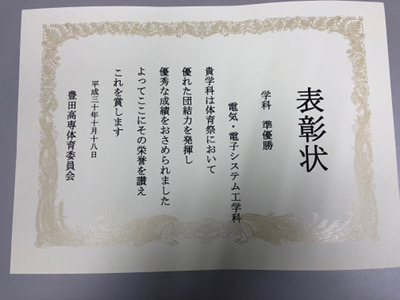 表彰状
学科 準優勝
電気・電子システム工学科
貴学科は体育祭において
優れた団結力を発揮し
優秀な成績をおさめられました
よってここにその栄誉を讃え
これを賞します
平成三十年十月十八日
豊田高専体育委員会